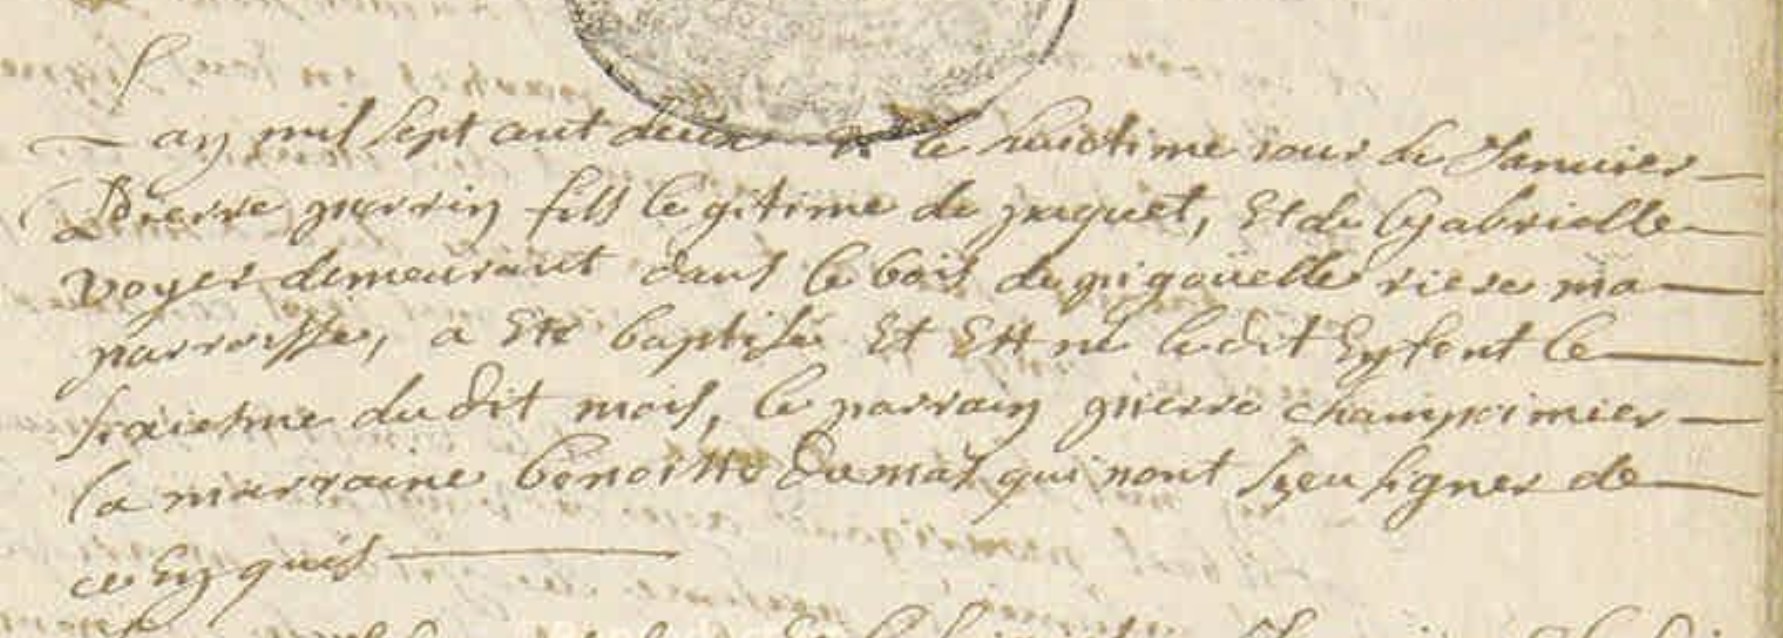 Lan mil sept cent deux et le huictime iour de Januier
Pierre guerrin fils legitime de jaquet, Et de Gabrielle
voyer demeurant dans le bois de pigouëlle riere ma
parroisse, a Eté baptisé Et Est né ledit Enfent le
sixiesme dudit mois, le parrain pierre champromier
la marraine benoitte Dumas qui nont sceu signer de
ce Enquis